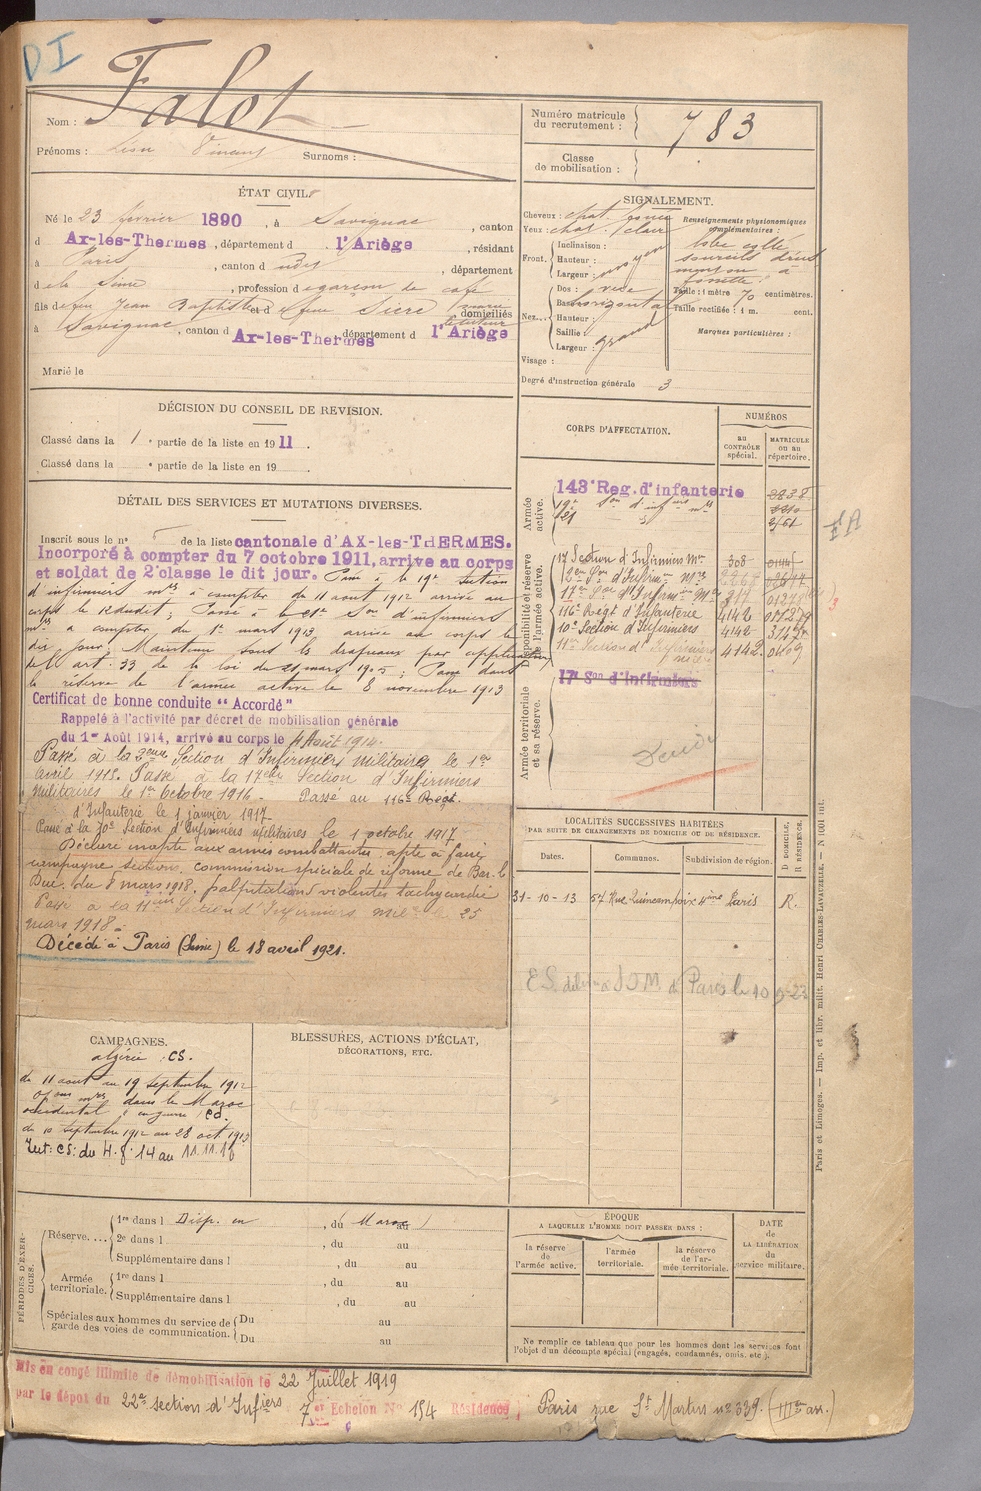 DI
Nom : Falot
Prénoms : Léon Vincent Surnoms :
Numéro matricule du recrutement : 783
Classe de mobilisation :
ÉTAT CIVIL.
Né le 23 février 1890, à Savignac, canton
d Ax-les-Thermes, département d l'Ariège, résidant
à Paris, canton d udit, département
d e la Seine, profession d e garçon de café
fils de feu Jean Baptiste et d e feue Sicre Marie domiciliés
à Savignac, canton d Ax-les-Thermes département d l'Ariège
Marié le
SIGNALEMENT.
Cheveux : chat. foncé
Yeux : chat. clair
Front. Inclinaison :
Hauteur :
Largeur : moyen
Nez. Dos :
Base : horizontal
Hauteur :
Saillie :
Largeur : grand
Visage :
Degré d'instruction générale 3
Renseignements physionomiques complémentaires :
lobe collé
sourcils droits
menton à
fossette
Taille : 1 mètre 70 centimètres.
Taille rectifiée : 1 m. cent.
Marques particulières :
DÉCISION DU CONSEIL DE REVISION.
Classé dans la 1 e partie de la liste en 1911.
Classé dans la e partie de la liste en 19
DÉTAIL DES SERVICES ET MUTATIONS DIVERSES.
Inscrit sous le n° 5 de la liste cantonale d'AX-les-THERMES.
Incorporé à compter du 7 octobre 1911, arrive au corps
et soldat de 2e classe le dit jour. Passé à la 19e section
d'infirmiers mres à compter du 11 aout 1912 arrivé au
corps le 12 dudit; Passé à la 21e Son d'infirmiers
mres à compter du 1er mars 1913, arrivé au corps le
dit jour. Maintenu sous les drapeaux par application
de l'art. 33 de la loi du 21 mars 1905; Passé dans
la réserve de l'armée active le 8 novembre 1913
Certificat de bonne conduite "Accordé"
Rappelé à l'activité par décret de mobilisation générale
du 1er Août 1914, arrivé au corps le 4 Août 1914.
Passé à la 2eme Section d'Infirmiers Militaires le 1er
avril 1915. Passé à la 17eme Section d'Infirmiers
militaires le 1er Octobre 1916. Passé au 116e Regt.
d'Infanterie le 1 janvier 1917
Passé à la 10e Section d'Infirmiers militaires le 1 octobre 1917
Déclaré inapte aux armes combattantes, apte à faire
campagne section, commission spéciale de réforme de Bar-l-
Duc. du 8 mars 1918. palpitations violentes tachycardie
Passé à la 11eme Section d'Infirmiers milres le 25
mars 1918.
Décédé à Paris (Seine) le 18 avril 1921.
CORPS D'AFFECTATION.
NUMÉROS
au CONTRÔLE spécial.
MATRICULE ou au répertoire.
Armée active.
143e Reg. d'infanterie 2838
19e Son d'infirs mres
21
2161
Disponibilité et réserve de l'armée active.
17 Section d'Infirmiers Mres 308
2e Son d'Infirm. Mres
17e Son d'Infirm Mres
116e Régt d'Infanterie 4142
10e Section d'Infirmiers 4142
11e Section d'Infirmiers 4142 0409
Armée territoriale et sa réserve.
17e Son d'Infirmiers
LOCALITÉS SUCCESSIVES HABITÉES
PAR SUITE DE CHANGEMENTS DE DOMICILE OU DE RÉSIDENCE.
Dates. Communes. Subdivision de région. D DOMICILE, R RÉSIDENCE.
31-10-13 54 Rue Quincampoix 4ème Paris R.
Paris le 10
CAMPAGNES.
algérie : CS.
du 11 aout au 19 septembre 1912
dans le Maroc
occidental en guerre CD.
du 20 septembre 1912 au 28 oct. 1913
Int: CS: du 4.8.14 au 11.11.18
BLESSURES, ACTIONS D'ÉCLAT,
DÉCORATIONS, ETC.
PÉRIODES D'EXERCICES.
Réserve.... 1re dans l Disp. en , du Maroc au
2e dans l , du au
Supplémentaire dans l , du au
Armée territoriale. 1re dans l , du au
Supplémentaire dans l , du au
Spéciales aux hommes du service de garde des voies de communication. Du au
Du au
ÉPOQUE
A LAQUELLE L'HOMME DOIT PASSER DANS :
la réserve de l'armée active.
l'armée territoriale.
la réserve de l'armée territoriale.
DATE DE LA LIBÉRATION du service militaire.
Ne remplir ce tableau que pour les hommes dont les services font
l'objet d'un décompte spécial (engagés, condamnés, omis, etc.).
Paris et Limoges. — Imp. et libr. milit. Henri CHARLES-LAVAUZELLE. — N 1001 int.
Mis en congé illimité de démobilisation le 22 Juillet 1919
par le dépôt du 22e section d'Infiers 7 er Echelon No 154 Résidence : Paris rue St Martin no 339. (IIIe arr.)